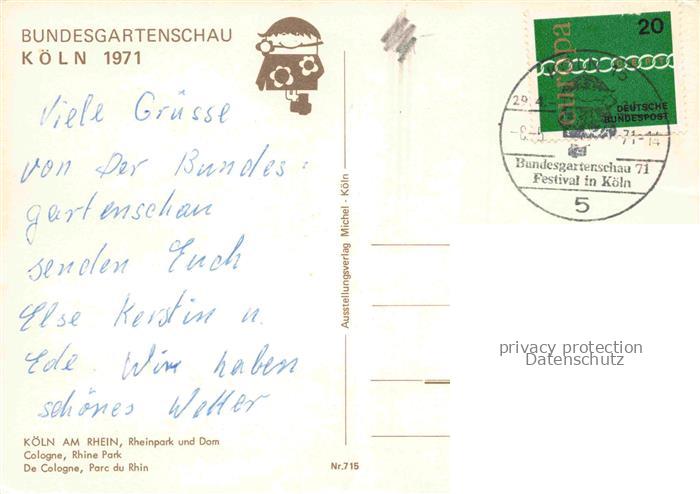 BUNDESGARTENSCHAU
KÖLN 1971
Viele Grüsse
von der Bundes:
gartenschau
senden Euch
Else Kerstin u.
Ede. Wir haben
schönes Wetter
KÖLN AM RHEIN, Rheinpark und Dom
Cologne, Rhine Park
De Cologne, Parc du Rhin
Nr.715
Ausstellungsverlag Michel - Köln
europa
20
DEUTSCHE
BUNDESPOST
29.4.
71-14
Bundesgartenschau 71
Festival in Köln
5
privacy protection
Datenschutz